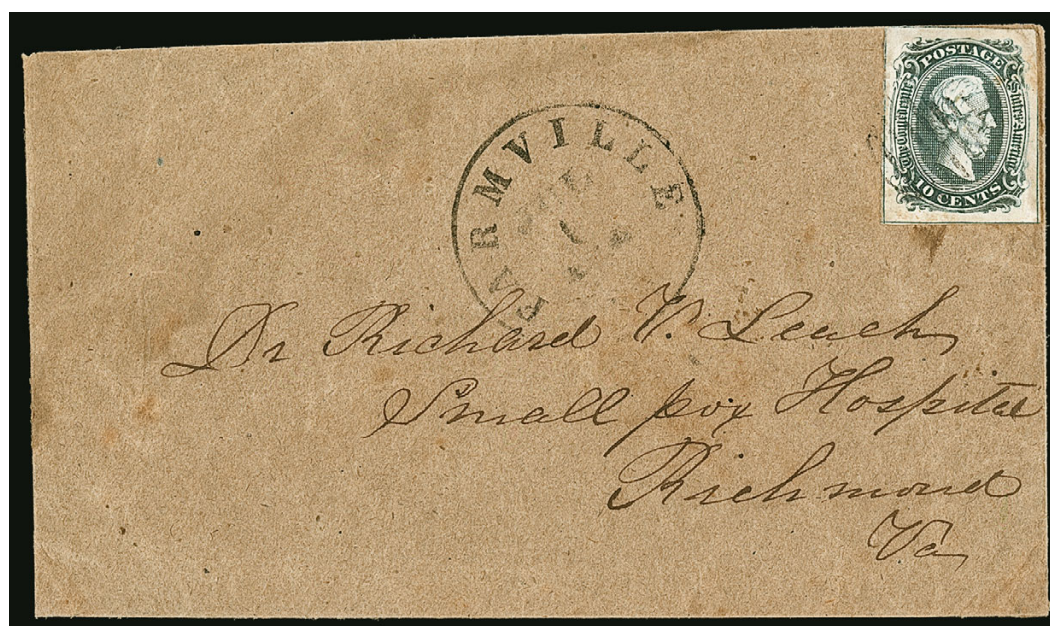 POSTAGE
The Confederate States of America
10 CENTS
FARMVILLE
Dr Richard V. Leach
Small pox Hospital
Richmond
Va